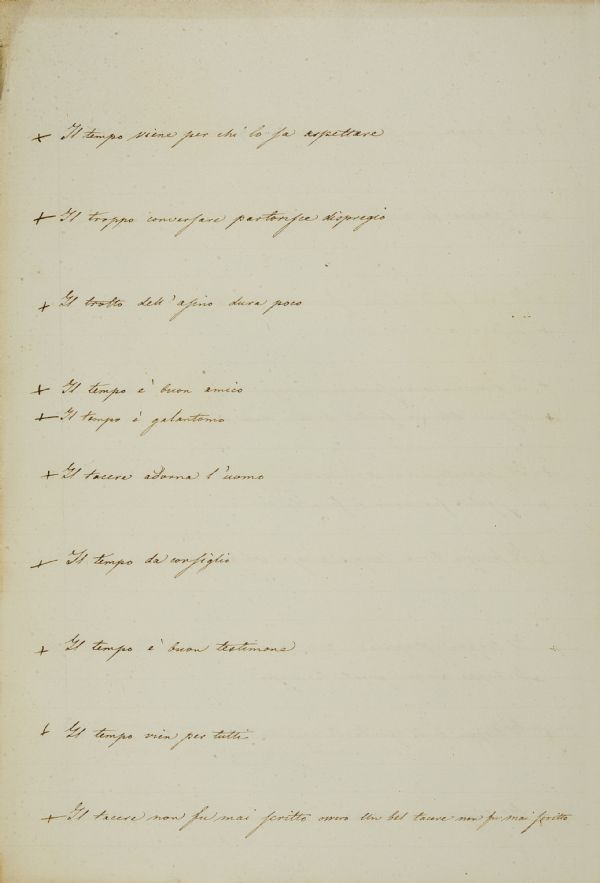 + Il tempo viene per chi lo sa aspettare
+ Il troppo conversare partorisce dispregio
+ Il trotto dell'asino dura poco
+ Il tempo è buon amico
+ Il tempo è galantomo
+ Il tacere adorna l'uomo
+ Il tempo da consiglio
+ Il tempo è buon testimone
+ Il tempo vien per tutti
+ Il tacere non fu mai scritto ovvero Un bel tacere non fu mai scritto